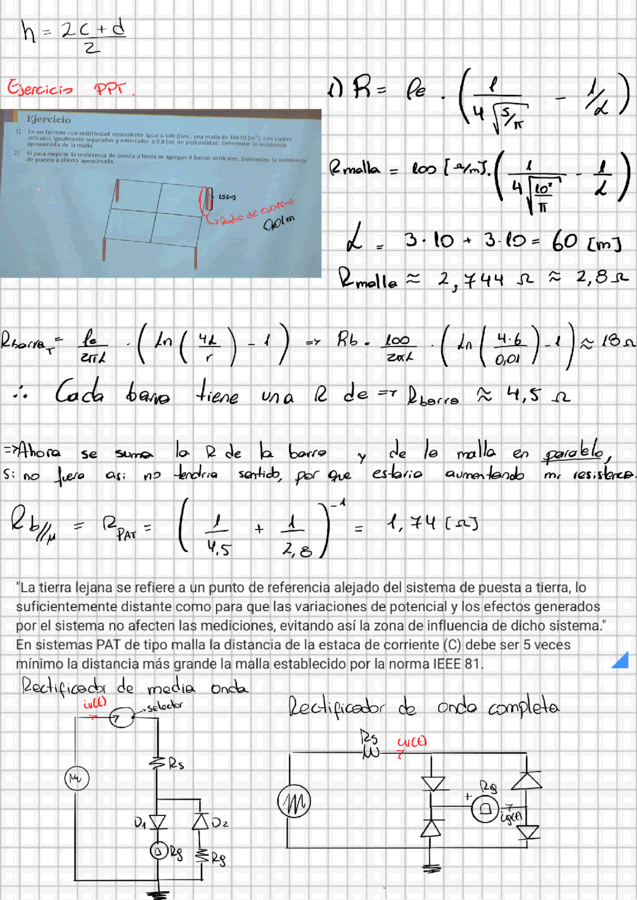 h = 2c + d / 2
Ejercicio PPT.
Ejercicio
1) En un terreno con resistividad equivalente igual a 100 [Ωm], una malla de 10x10 [m²], con cuatro
retículos igualmente separados y enterrador a 0.8 [m] de profundidad. Determine la resistencia
aproximada de la malla.
2) Si para mejorar la resistencia de puesta a tierra se agregan 4 barras verticales. Determine la resistencia
de puesta a tierra aproximada.
→ Radio de
0,01m
1) R = ρe · ( 1 / 4√(S/π) - 1/L )
Rmalla = 100 [Ω/m] · ( 1 / 4√(10²/π) - 1/L )
L = 3·10 + 3·10 = 60 [m]
Rmalla ≈ 2,744 Ω ≈ 2,8Ω
RbarraT = ρe / 2πL · ( ln ( 4L / r ) - 1 ) => Rb = 100 / 2πL · ( ln ( 4·6 / 0,01 ) - 1 ) ≈ 18Ω
∴ Cada barra tiene una R de => Rbarra ≈ 4,5 Ω
=> Ahora se suma la R de la barra y de la malla en paralelo,
Si no fuera asi no tendria sentido, por que estaria aumentando mi resistencia.
Rb//M = RPAT = ( 1 / 4,5 + 1 / 2,8 )⁻¹ = 1,74 [Ω]
"La tierra lejana se refiere a un punto de referencia alejado del sistema de puesta a tierra, lo
suficientemente distante como para que las variaciones de potencial y los efectos generados
por el sistema no afecten las mediciones, evitando así la zona de influencia de dicho sistema."
En sistemas PAT de tipo malla la distancia de la estaca de corriente (C) debe ser 5 veces
mínimo la distancia más grande la malla establecido por la norma IEEE 81.
Rectificador de media onda
iu(t)
selector
Rs
D1
D2
Rg
Rg
Rectificador de onda completa
Rs
iu(t)
Rg
+
ig(t)